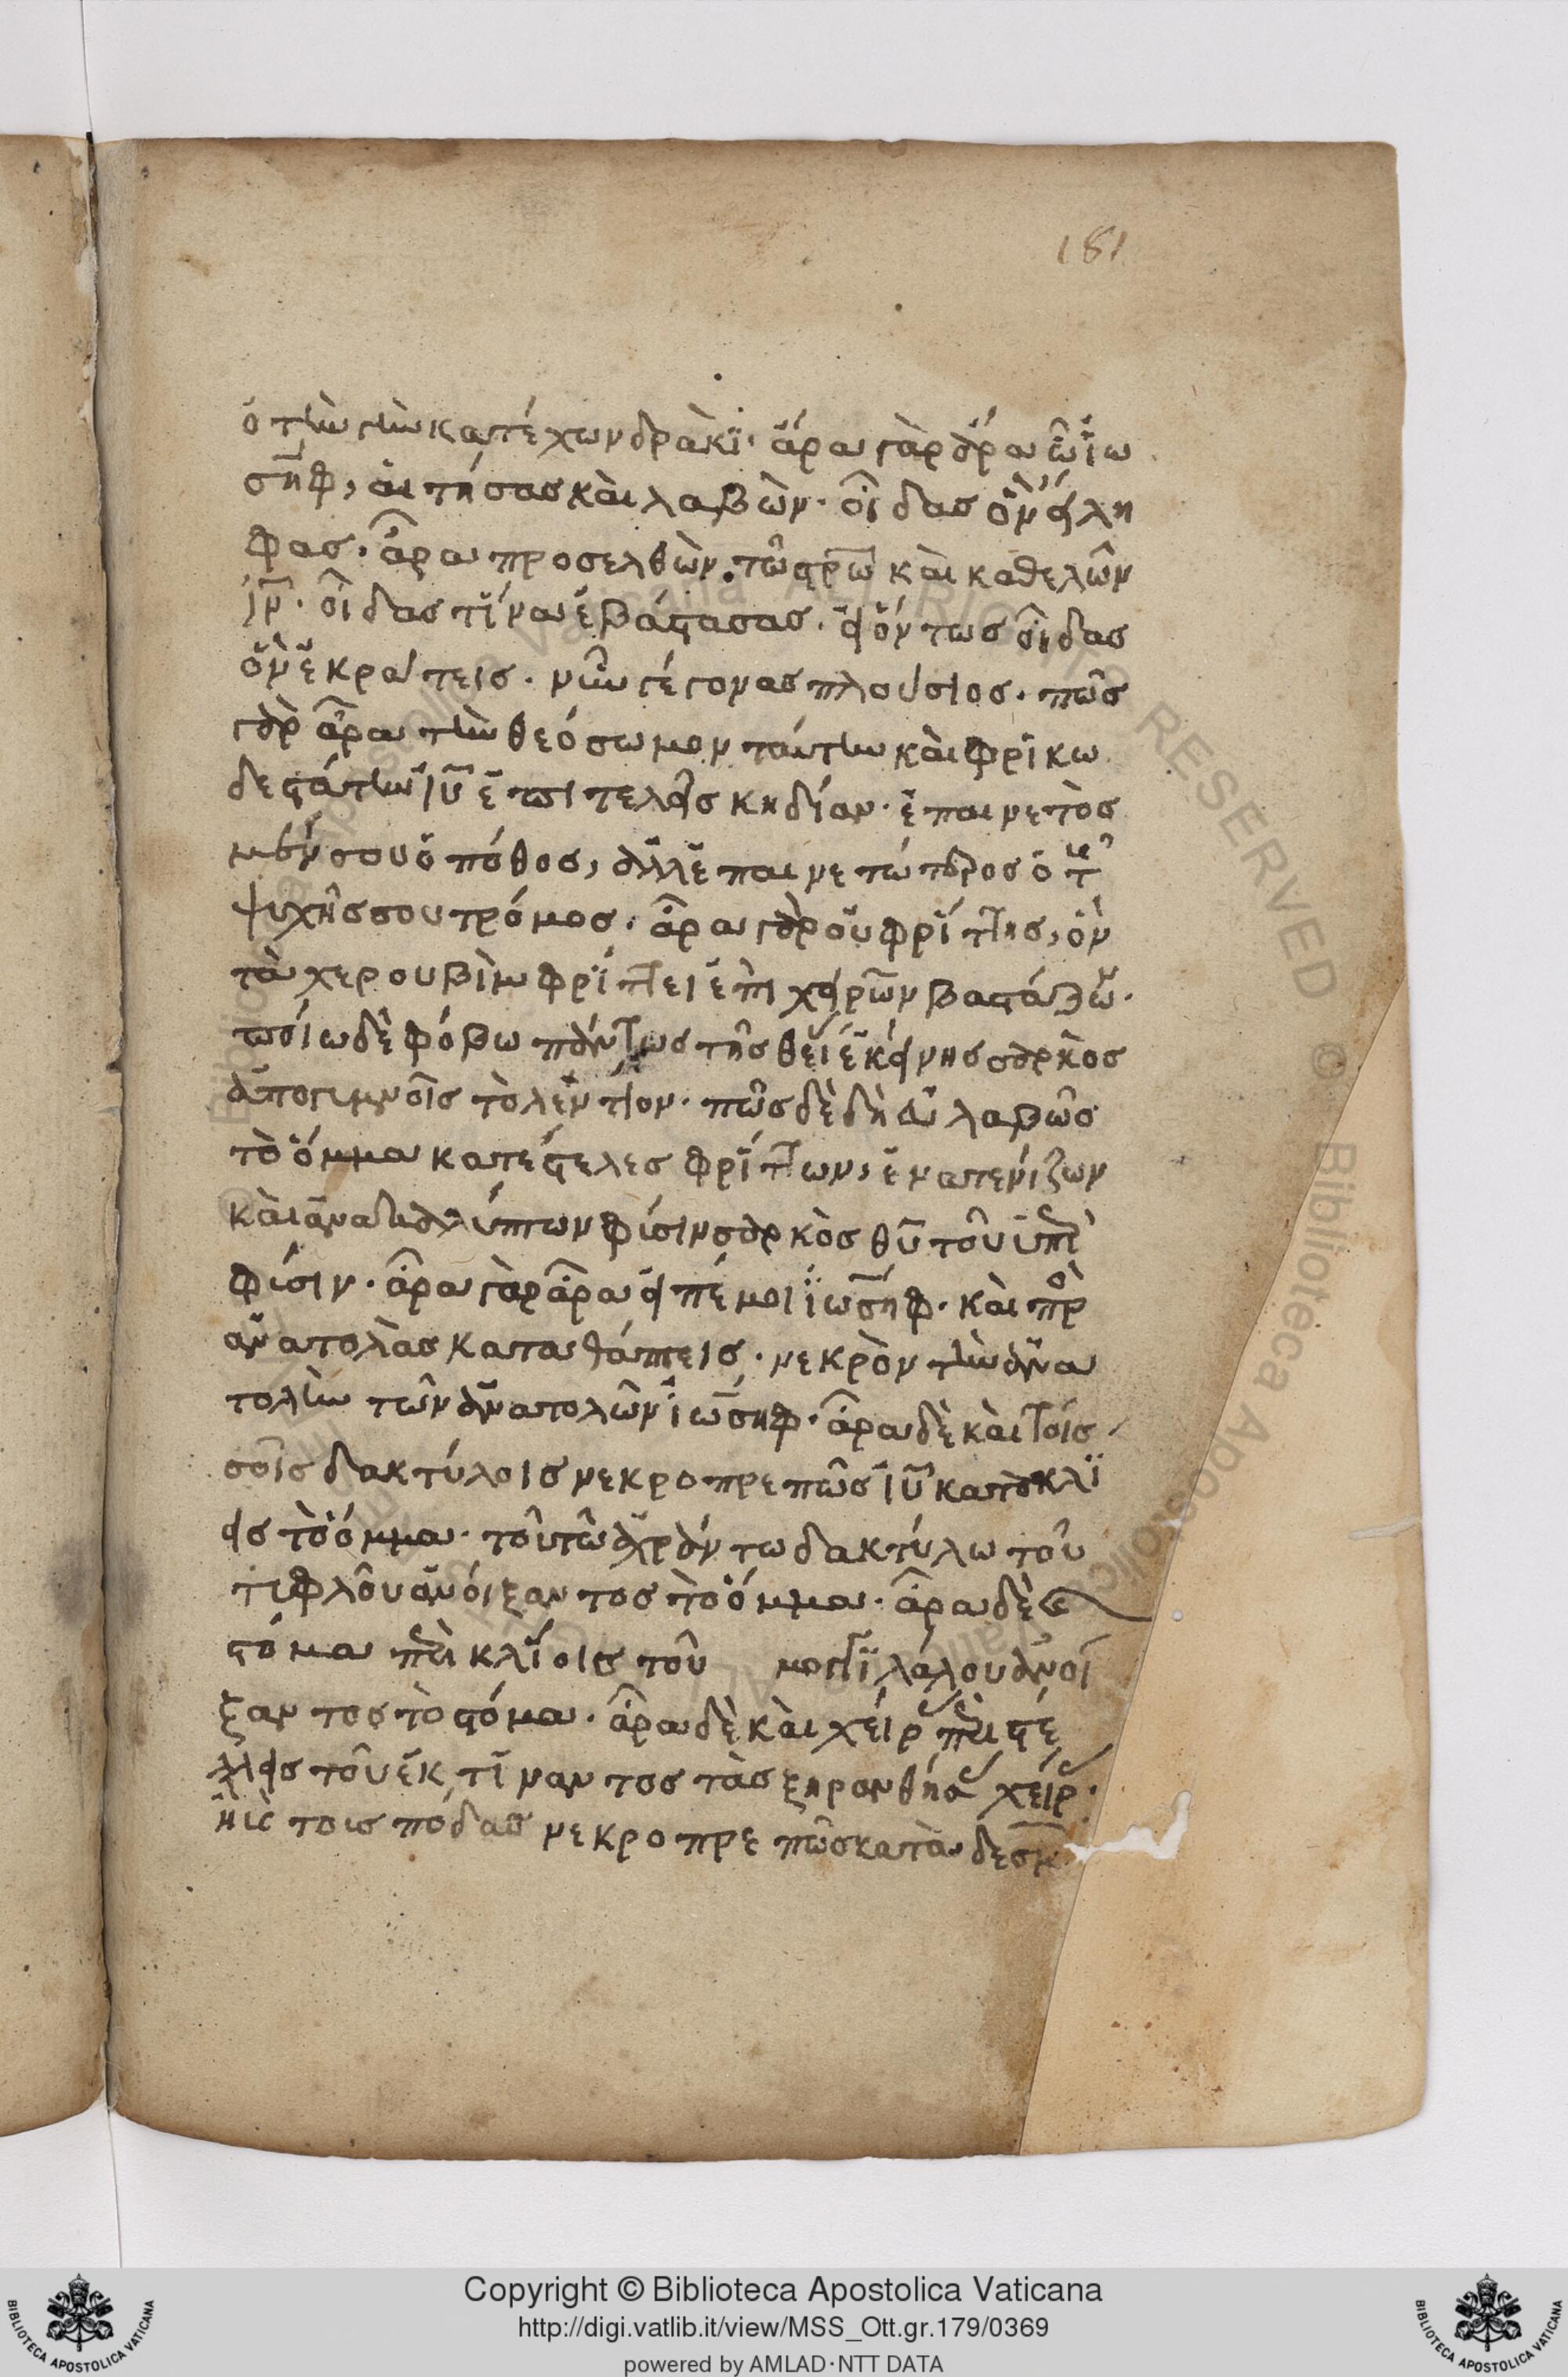 181
ὁ τὴν γῆν κατέχων δρακὶ· ἆρα γὰρ ἆρα ὦ ἰω
σὴφ, αἰτήσας καὶ λαβὼν· οἶδας ὃν εἴλη
φας· ἆρα προσελθὼν τῶ στρω καὶ καθελὼν
ιν· οἶδας τίνα ἐβάστασας· εἰ ὄντως οἶδας
ὃν ἐκράτεις· νῦν γέγονας πλούσιος· πῶς
γὰρ ἆρα τὴν θεόσωμον ταύτην καὶ φρικω
δεστάτην ιυ ἐπιτελεῖς κηδίαν· ἐπαινετὸς
μέν σου ὁ πόθος, ἀλλ' ἐπαινετώτερος ὁ τῆς
ψυχῆς σου τρόμος· ἆρα γὰρ οὐ φρίττης, ὃν
τὰ χερουβὶμ φρίττει ἐπὶ χειρῶν βαστάζων·
ποίω δὲ φόβω πάντως τῆς θείας ἐκείνης σαρκὸς
ἀπογυμνοῖς τὸ λέντιον· πῶς δὲ δὴ εὐλαβῶς
τὸ ὄμμα κατέστελες φρίττων, ἐνατενίζων
καὶ ἀνακαλύπτων φύσιν σαρκὸς θυ τοῦ ὑπὲρ
φύσιν· ἆρα γὰρ ἆρα εἰπέ μοι ἰωσὴφ· καὶ πρὸς
ἀνατολὰς καταθάπτεις· νεκρὸν τὴν ἀνα
τολὴν τῶν ἀνατολῶν ἰωσὴφ· ἆρα δὲ καὶ τοῖς
σοῖς δακτύλοις νεκροπρεπῶς ιυ κατεκλι
εις τὸ ὄμμα· τοῦ τῶ ἀχράντω δακτύλω τοῦ
τυφλοῦ ἀνοίξαντος τὸ ὄμμα· ἆρα δὲ
στόμα περικλίοις τοῦ μογγιλάλου ἀνοί
ξαντος τὸ στόμα· ἆρα δὲ καὶ χεῖρας περιστέ
λλεις τοῦ ἐκτίναντος τὰς ξηρανθήσας χεῖρας·
ἢ καὶ τοις πόδας νεκροπρεπῶς κατὰ δεσμ
Copyright © Biblioteca Apostolica Vaticana
http://digi.vatlib.it/view/MSS_Ott.gr.179/0369
powered by AMLAD·NTT DATA
BIBLIOTECA APOSTOLICA VATICANA
BIBLIOTECA APOSTOLICA VATICANA